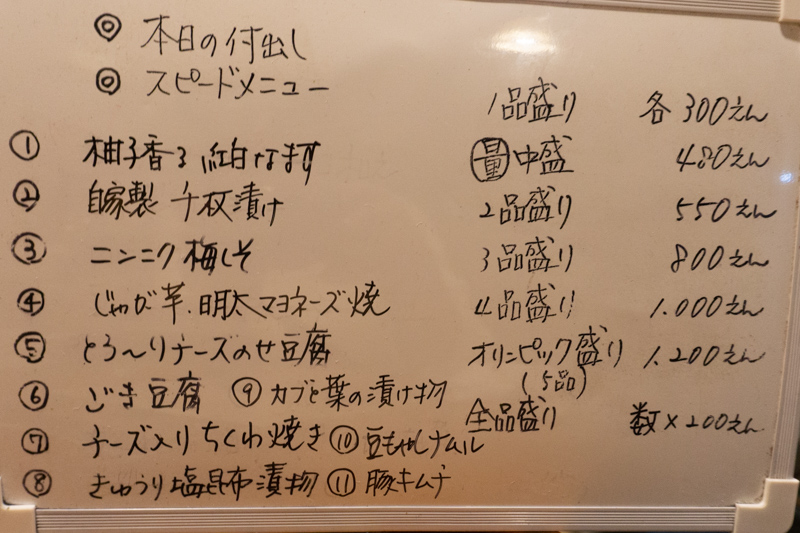 ◎ 本日の付出し
◎ スピードメニュー
① 柚子香る 紅白なます
② 自家製 千枚漬け
③ ニンニク梅しそ
④ じゃが芋.明太マヨネーズ焼
⑤ とろ〜りチーズのせ豆腐
⑥ ごま豆腐 ⑨ カブと葉の漬け物
⑦ チーズ入りちくわ焼き ⑩ 豆もやしナムル
⑧ きゅうり塩昆布漬物 ⑪ 豚キムチ
1品盛り 各300えん
量中盛 480えん
2品盛り 550えん
3品盛り 800えん
4品盛り 1.000えん
オリンピック盛り 1.200えん
(5品)
全品盛り 数×200えん